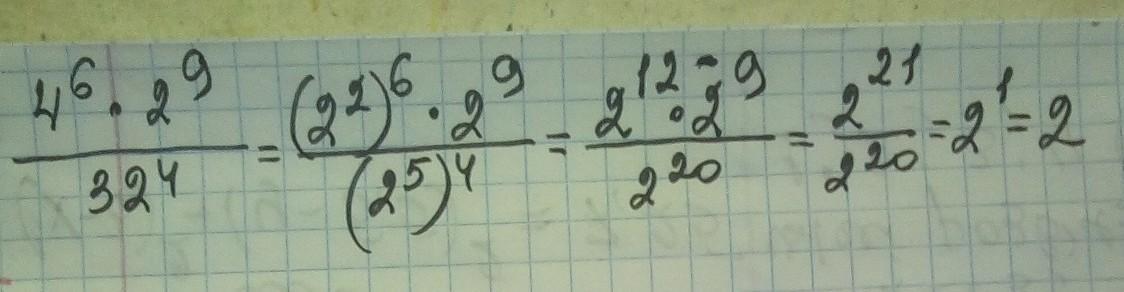 4⁶ · 2⁹ / 32⁴ = (2²)⁶ · 2⁹ / (2⁵)⁴ = 2¹² · 2⁹ / 2²⁰ = 2²¹ / 2²⁰ = 2¹ = 2